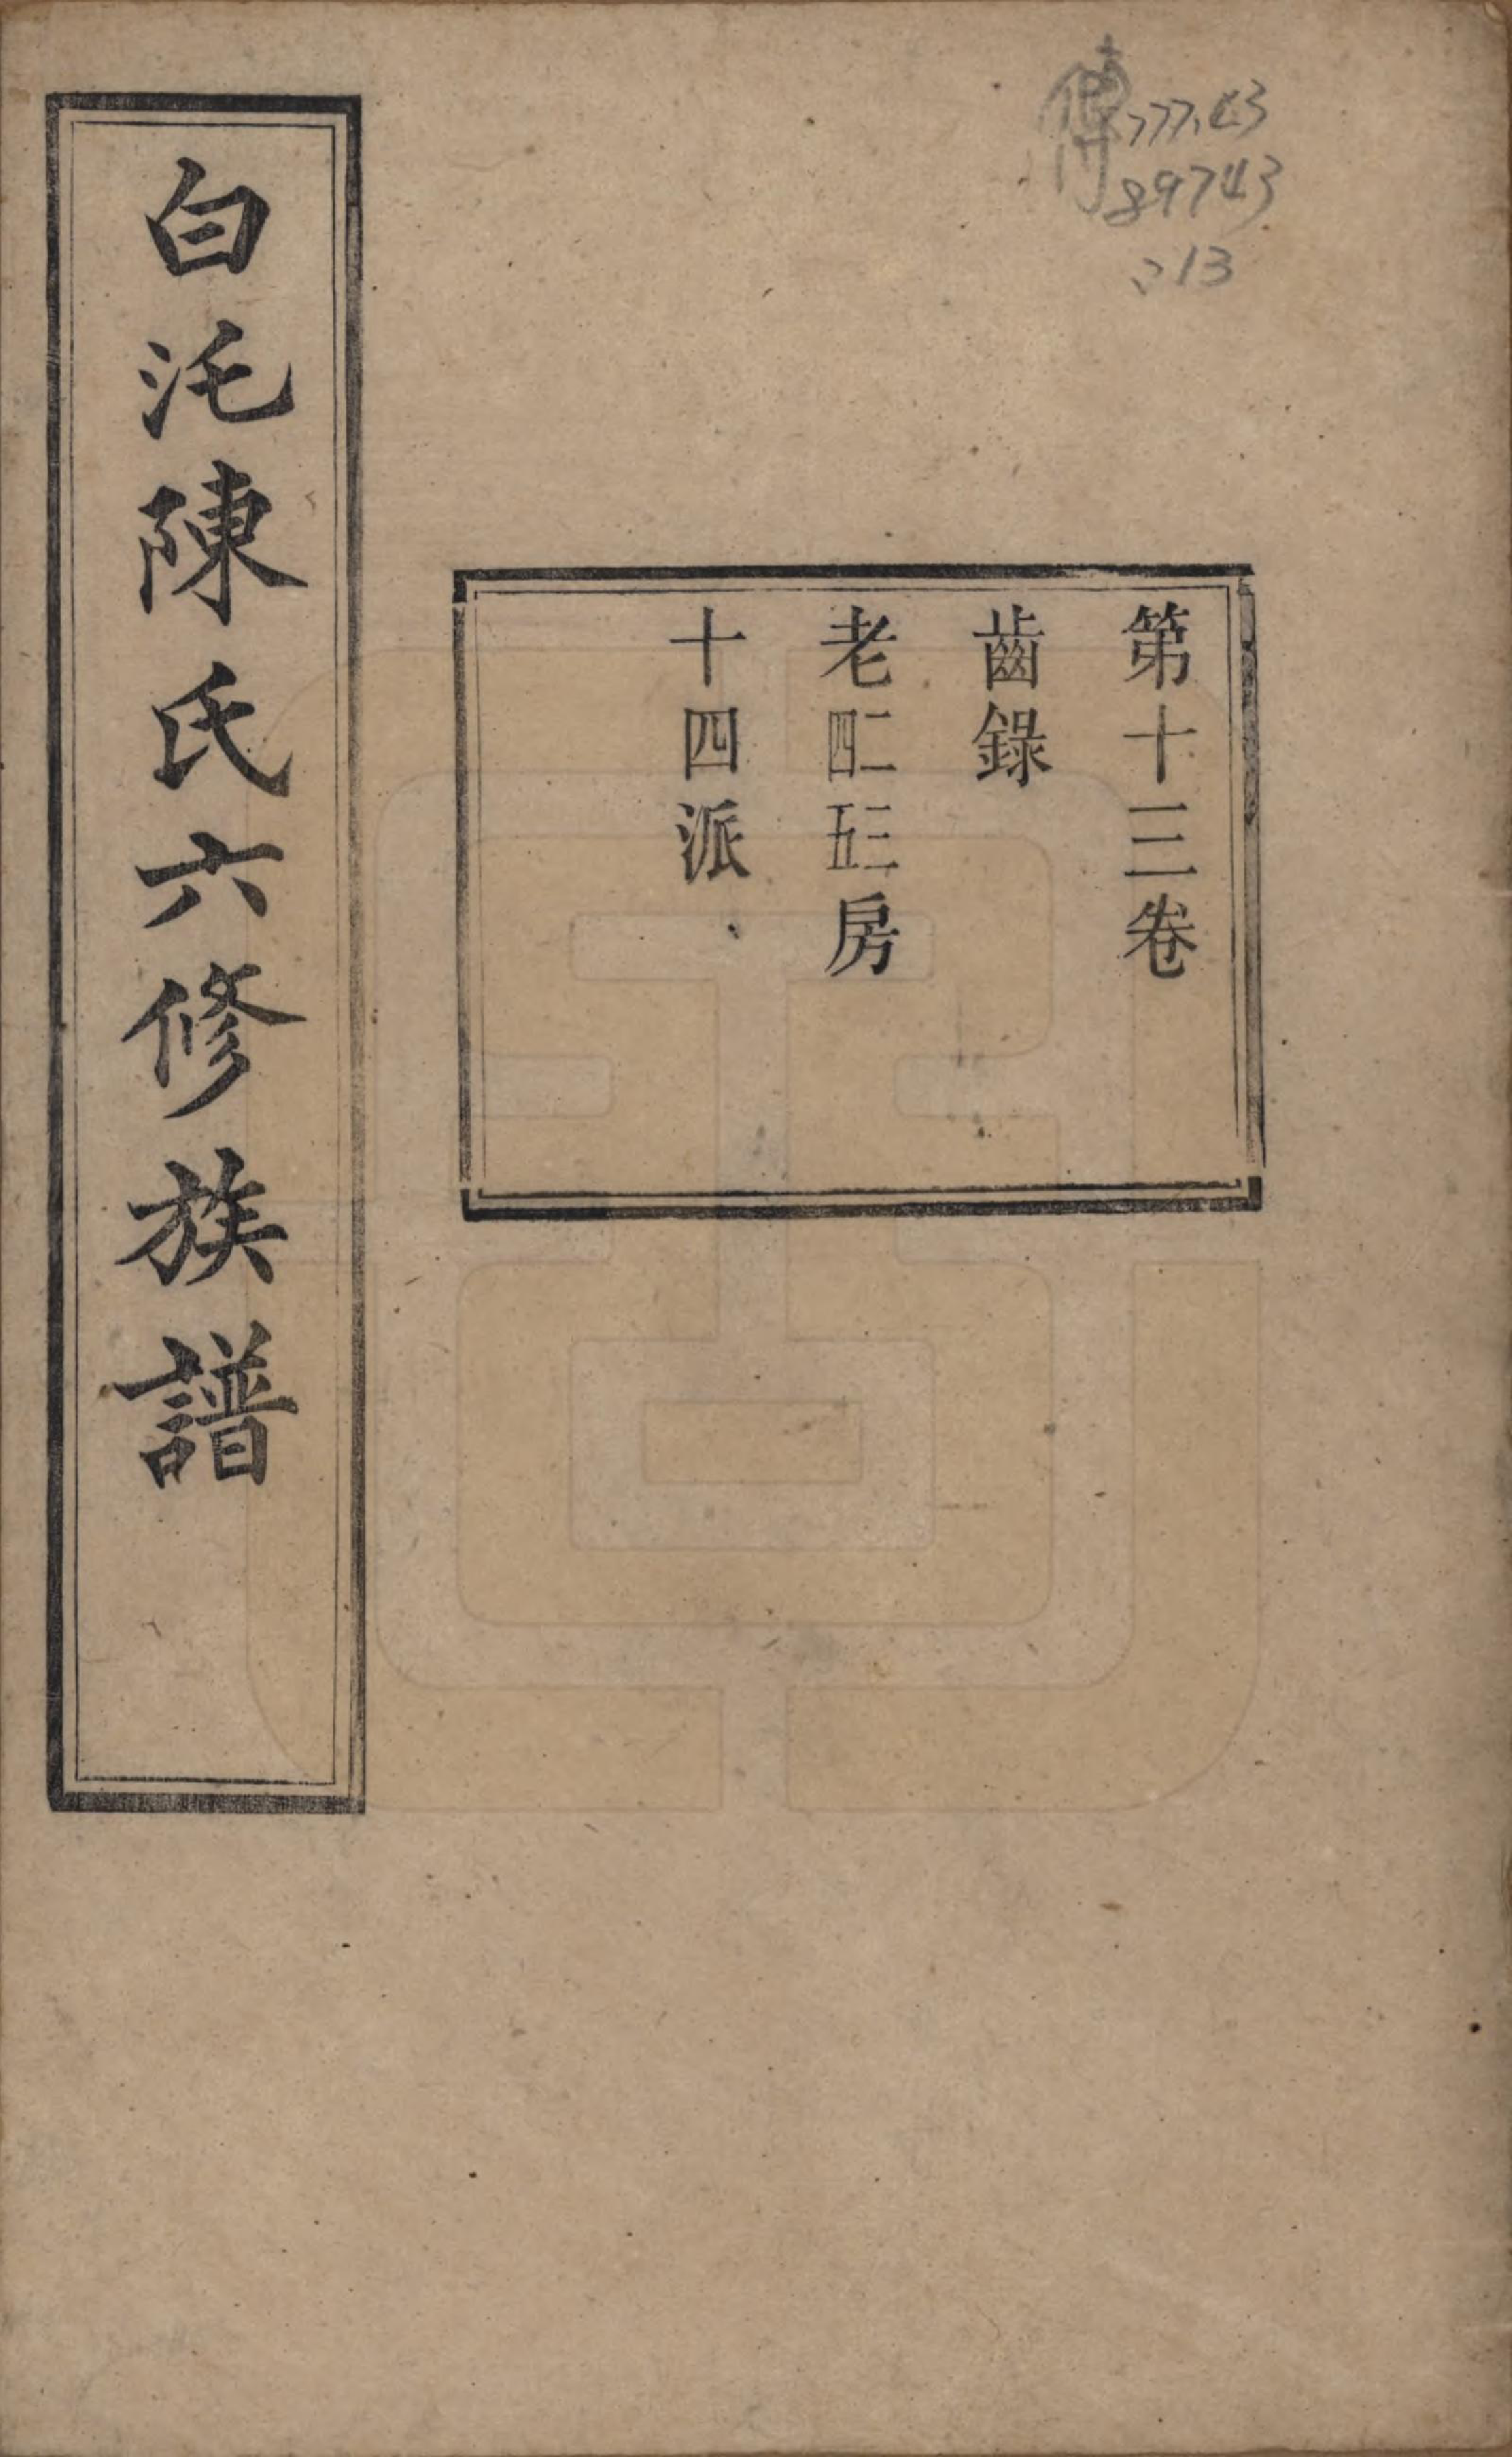 傳 777.43
89743
:13
第十三卷
齒錄
老二四三五房
十四派
白沱陳氏六修族譜